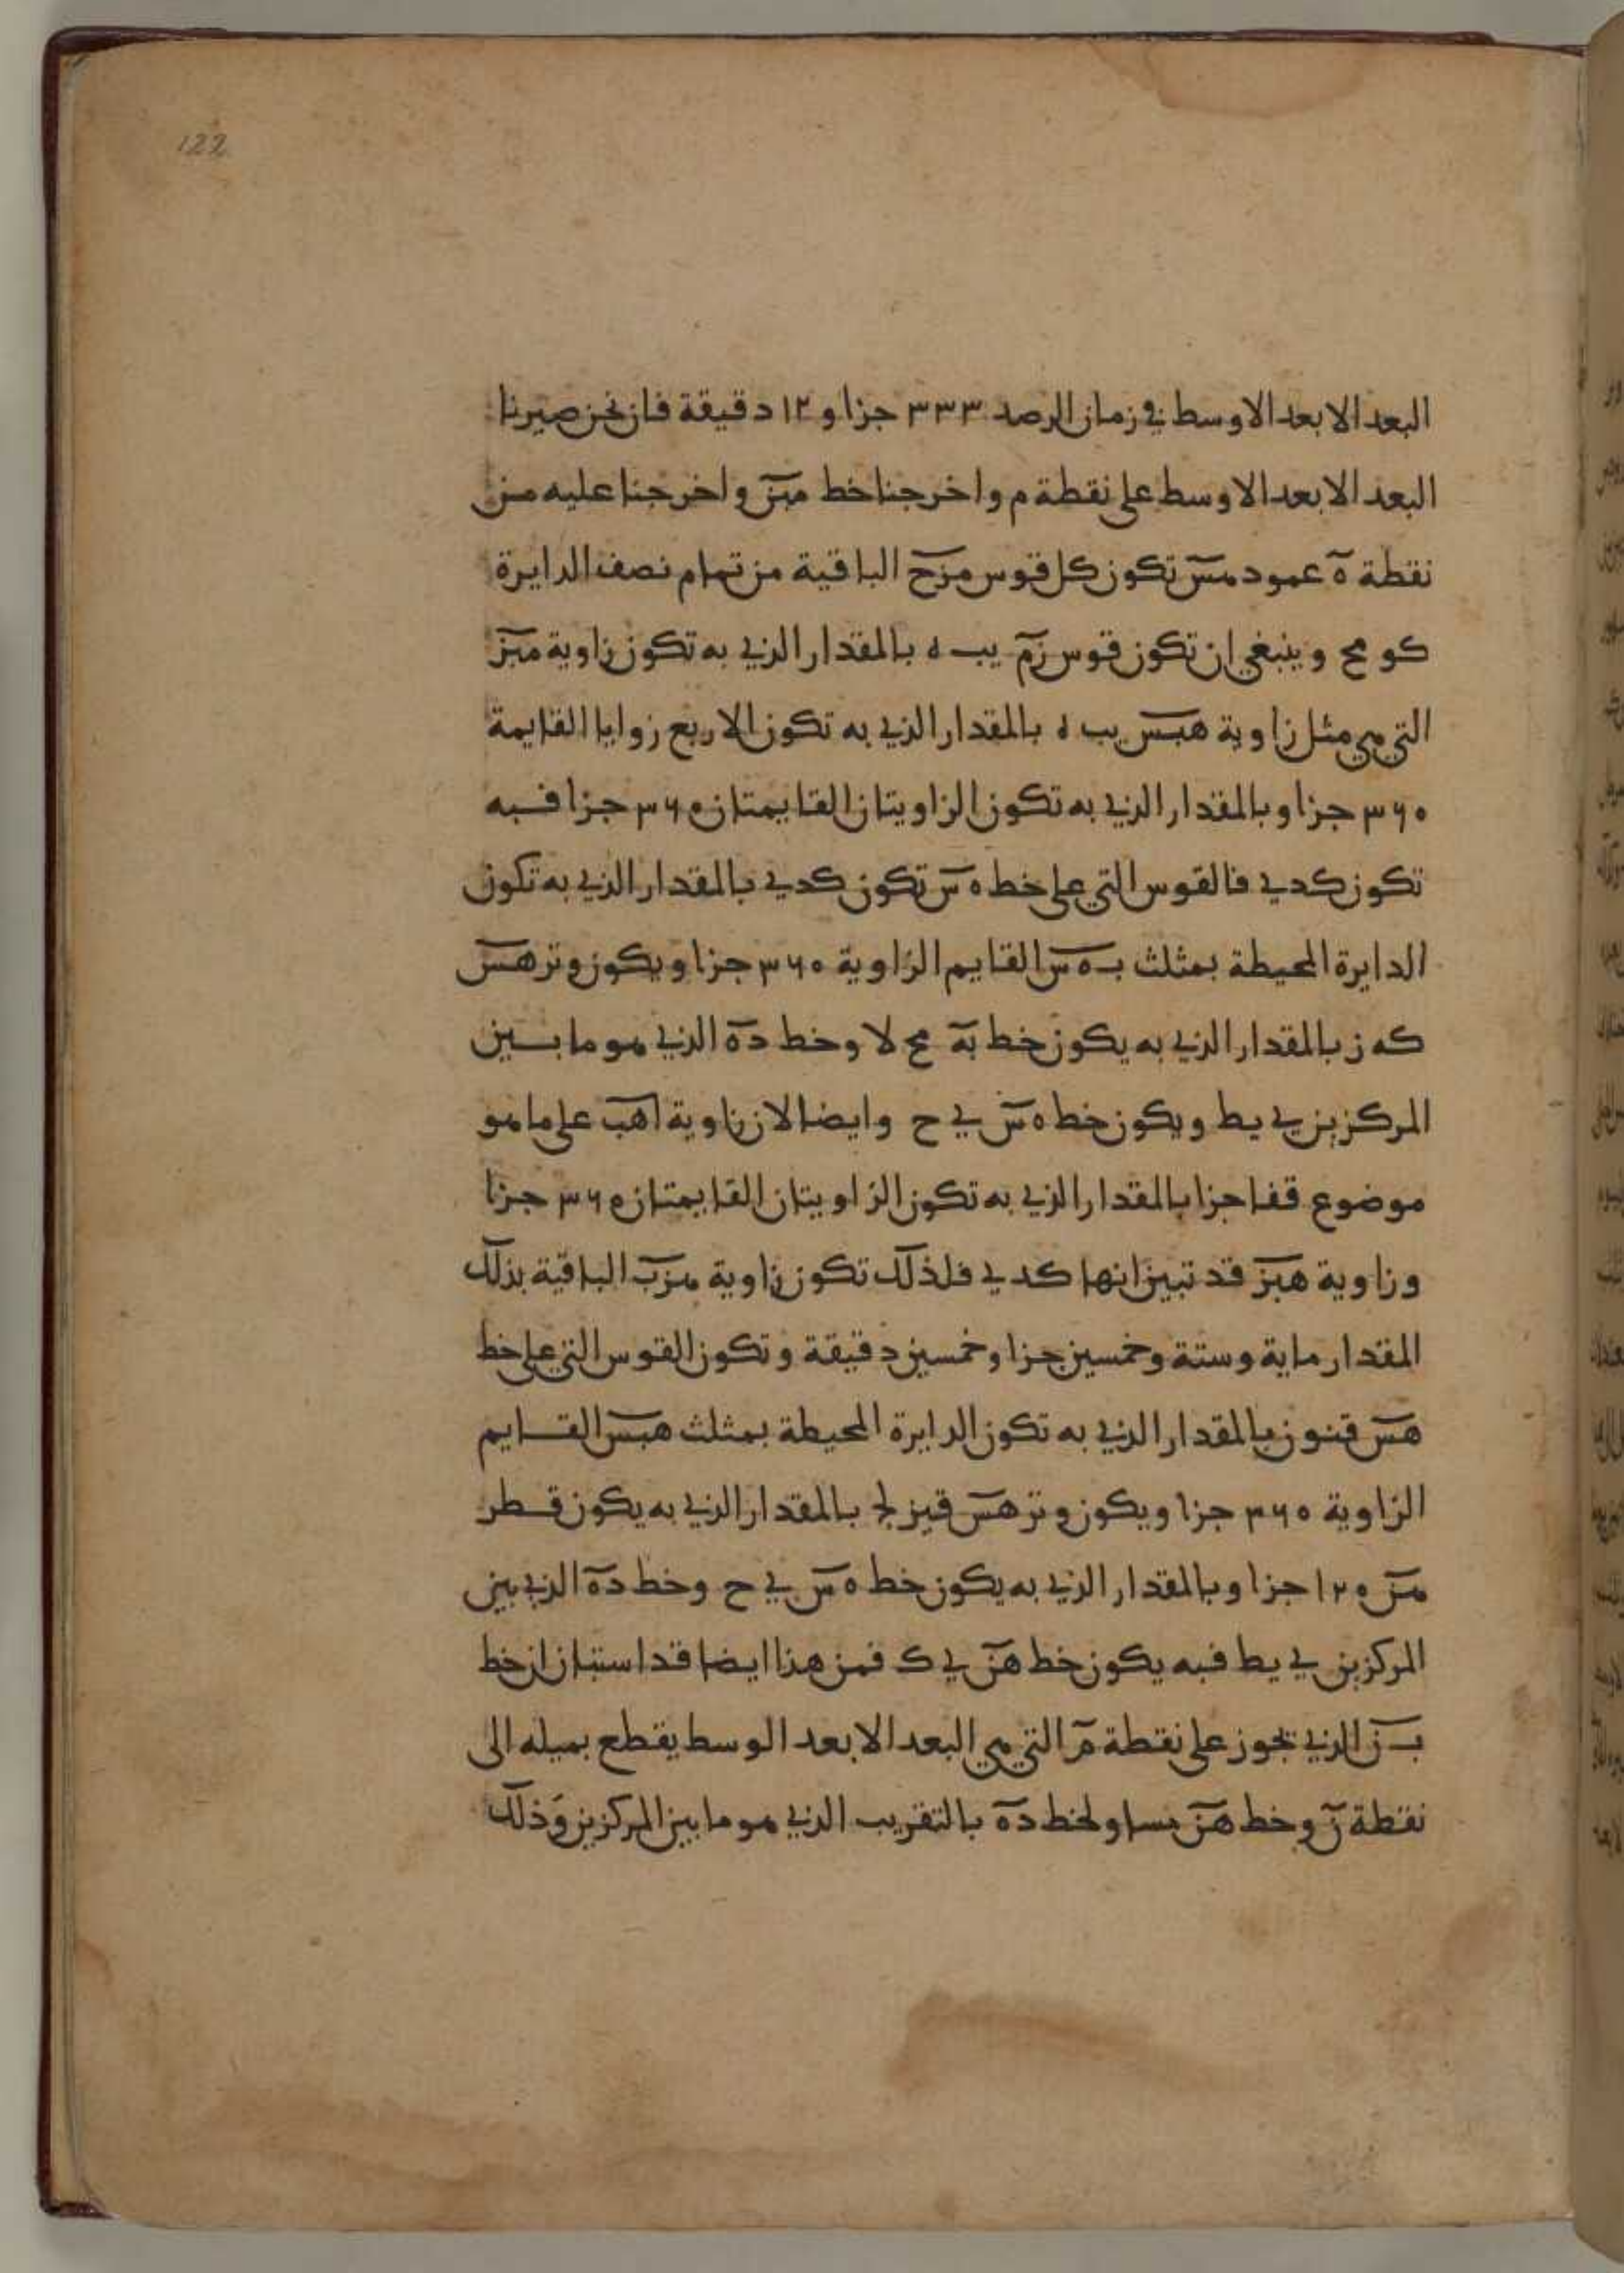 122
البعد الابعد الاوسط في زمان الرصد ٣٣٣ جزا و ١٢ دقيقة فان نحن صيرنا
البعد الابعد الاوسط على نقطة م واخرجنا خط واخرجنا عليه من
نقطة ه عمود تكون كل قوس الباقية من تمام نصف الدايرة
كو مح وينبغي ان تكون قوس زم يب ه بالمقدار الذي به تكون زاوية مبز
التي هي مثل زاوية هبس يب ه بالمقدار الذي به تكون الاربع زوايا القايمة
٣٦٠ جزا وبالمقدار الذي به تكون الزاويتان القايمتان ٣٦٠ جزا فبه
تكون كد ي فالقوس التي على خط ه س تكون كد ي بالمقدار الذي به تكون
الدايرة المحيطة بمثلث ب ه س القايم الزاوية ٣٦٠ جزا ويكون وتر هس
كه ز بالمقدار الذي به يكون خط به مح لا وخط ده الذي هو ما بين
المركزين ي يط ويكون خط ه س ي ح وايضا لان زاوية اهب على ما هو
موضوع قفا جزا بالمقدار الذي به تكون الزاويتان القايمتان ٣٦٠ جزا
وزاوية هبز قد تبين انها كد ي فلذلك تكون زاوية الباقية بذلك
المقدار ماية وستة وخمسين جزا وخمسين دقيقة وتكون القوس التي على خط
هس قنو ن بالمقدار الذي به تكون الدايرة المحيطة بمثلث القايم
الزاوية ٣٦٠ جزا ويكون وتر هس قيز لج بالمقدار الذي به يكون قطر
١٢٠ جزا وبالمقدار الذي به يكون خط ه س ي ح وخط ده الذي بين
المركزين ي يط فبه يكون خط هن ي ك فمن هذا ايضا قد استبان ان خط
ب ز الذي يجوز على نقطة م التي هي البعد الابعد الوسط يقطع بميله الى
نقطة ن وخط هن مساو لخط ده بالتقريب الذي هو ما بين المركزين وذلك